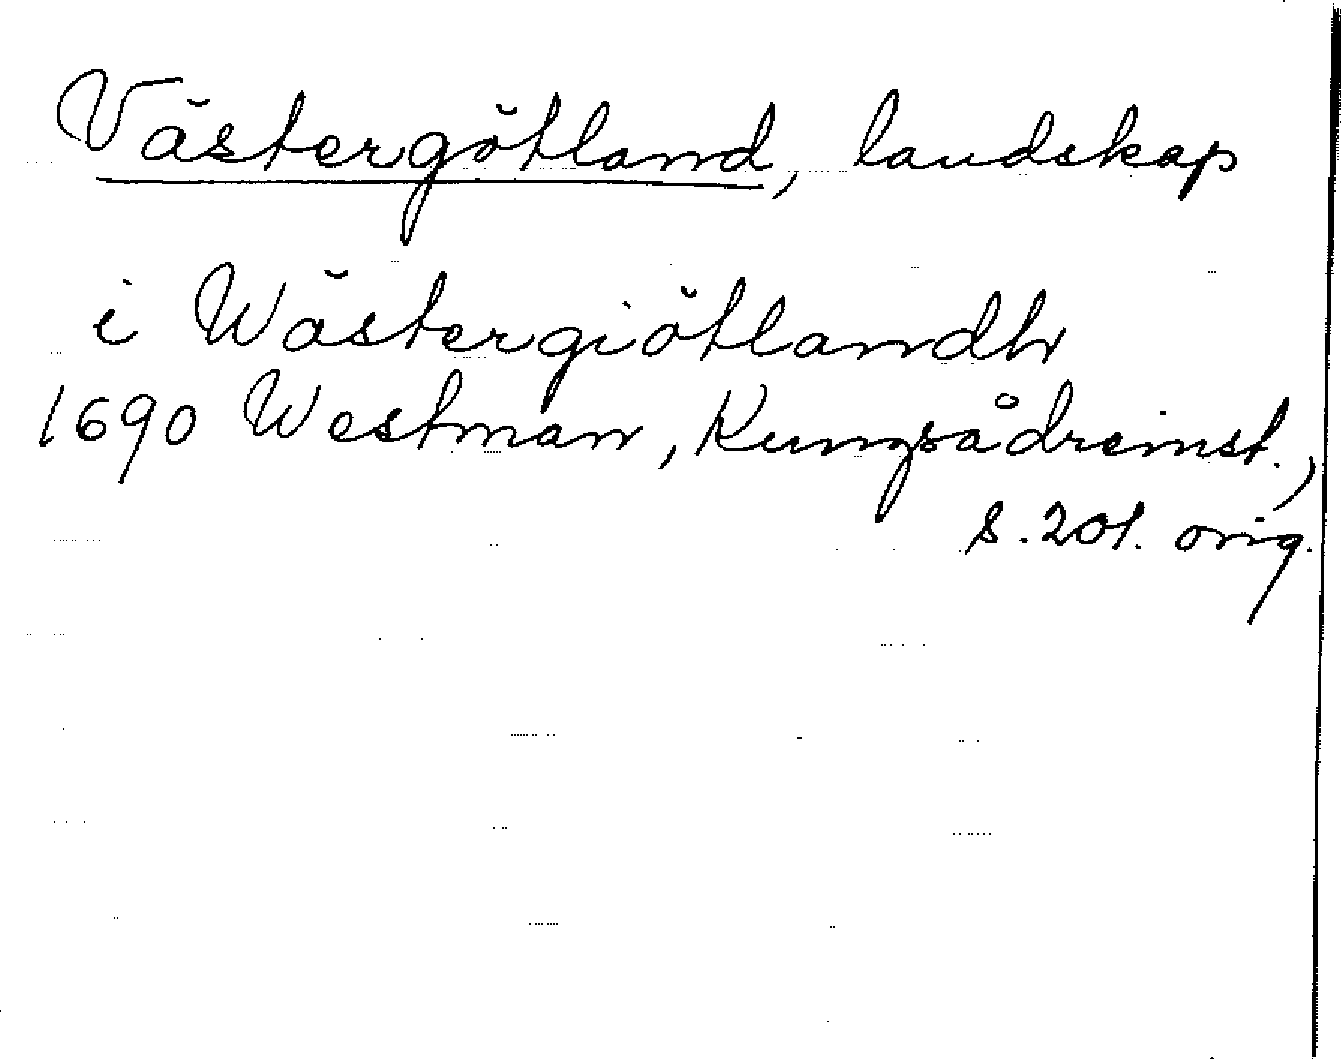 Västergötland, landskap
i Wästergiötlandh
1690 Westman, Kungsådreinst.,
s. 201. orig.